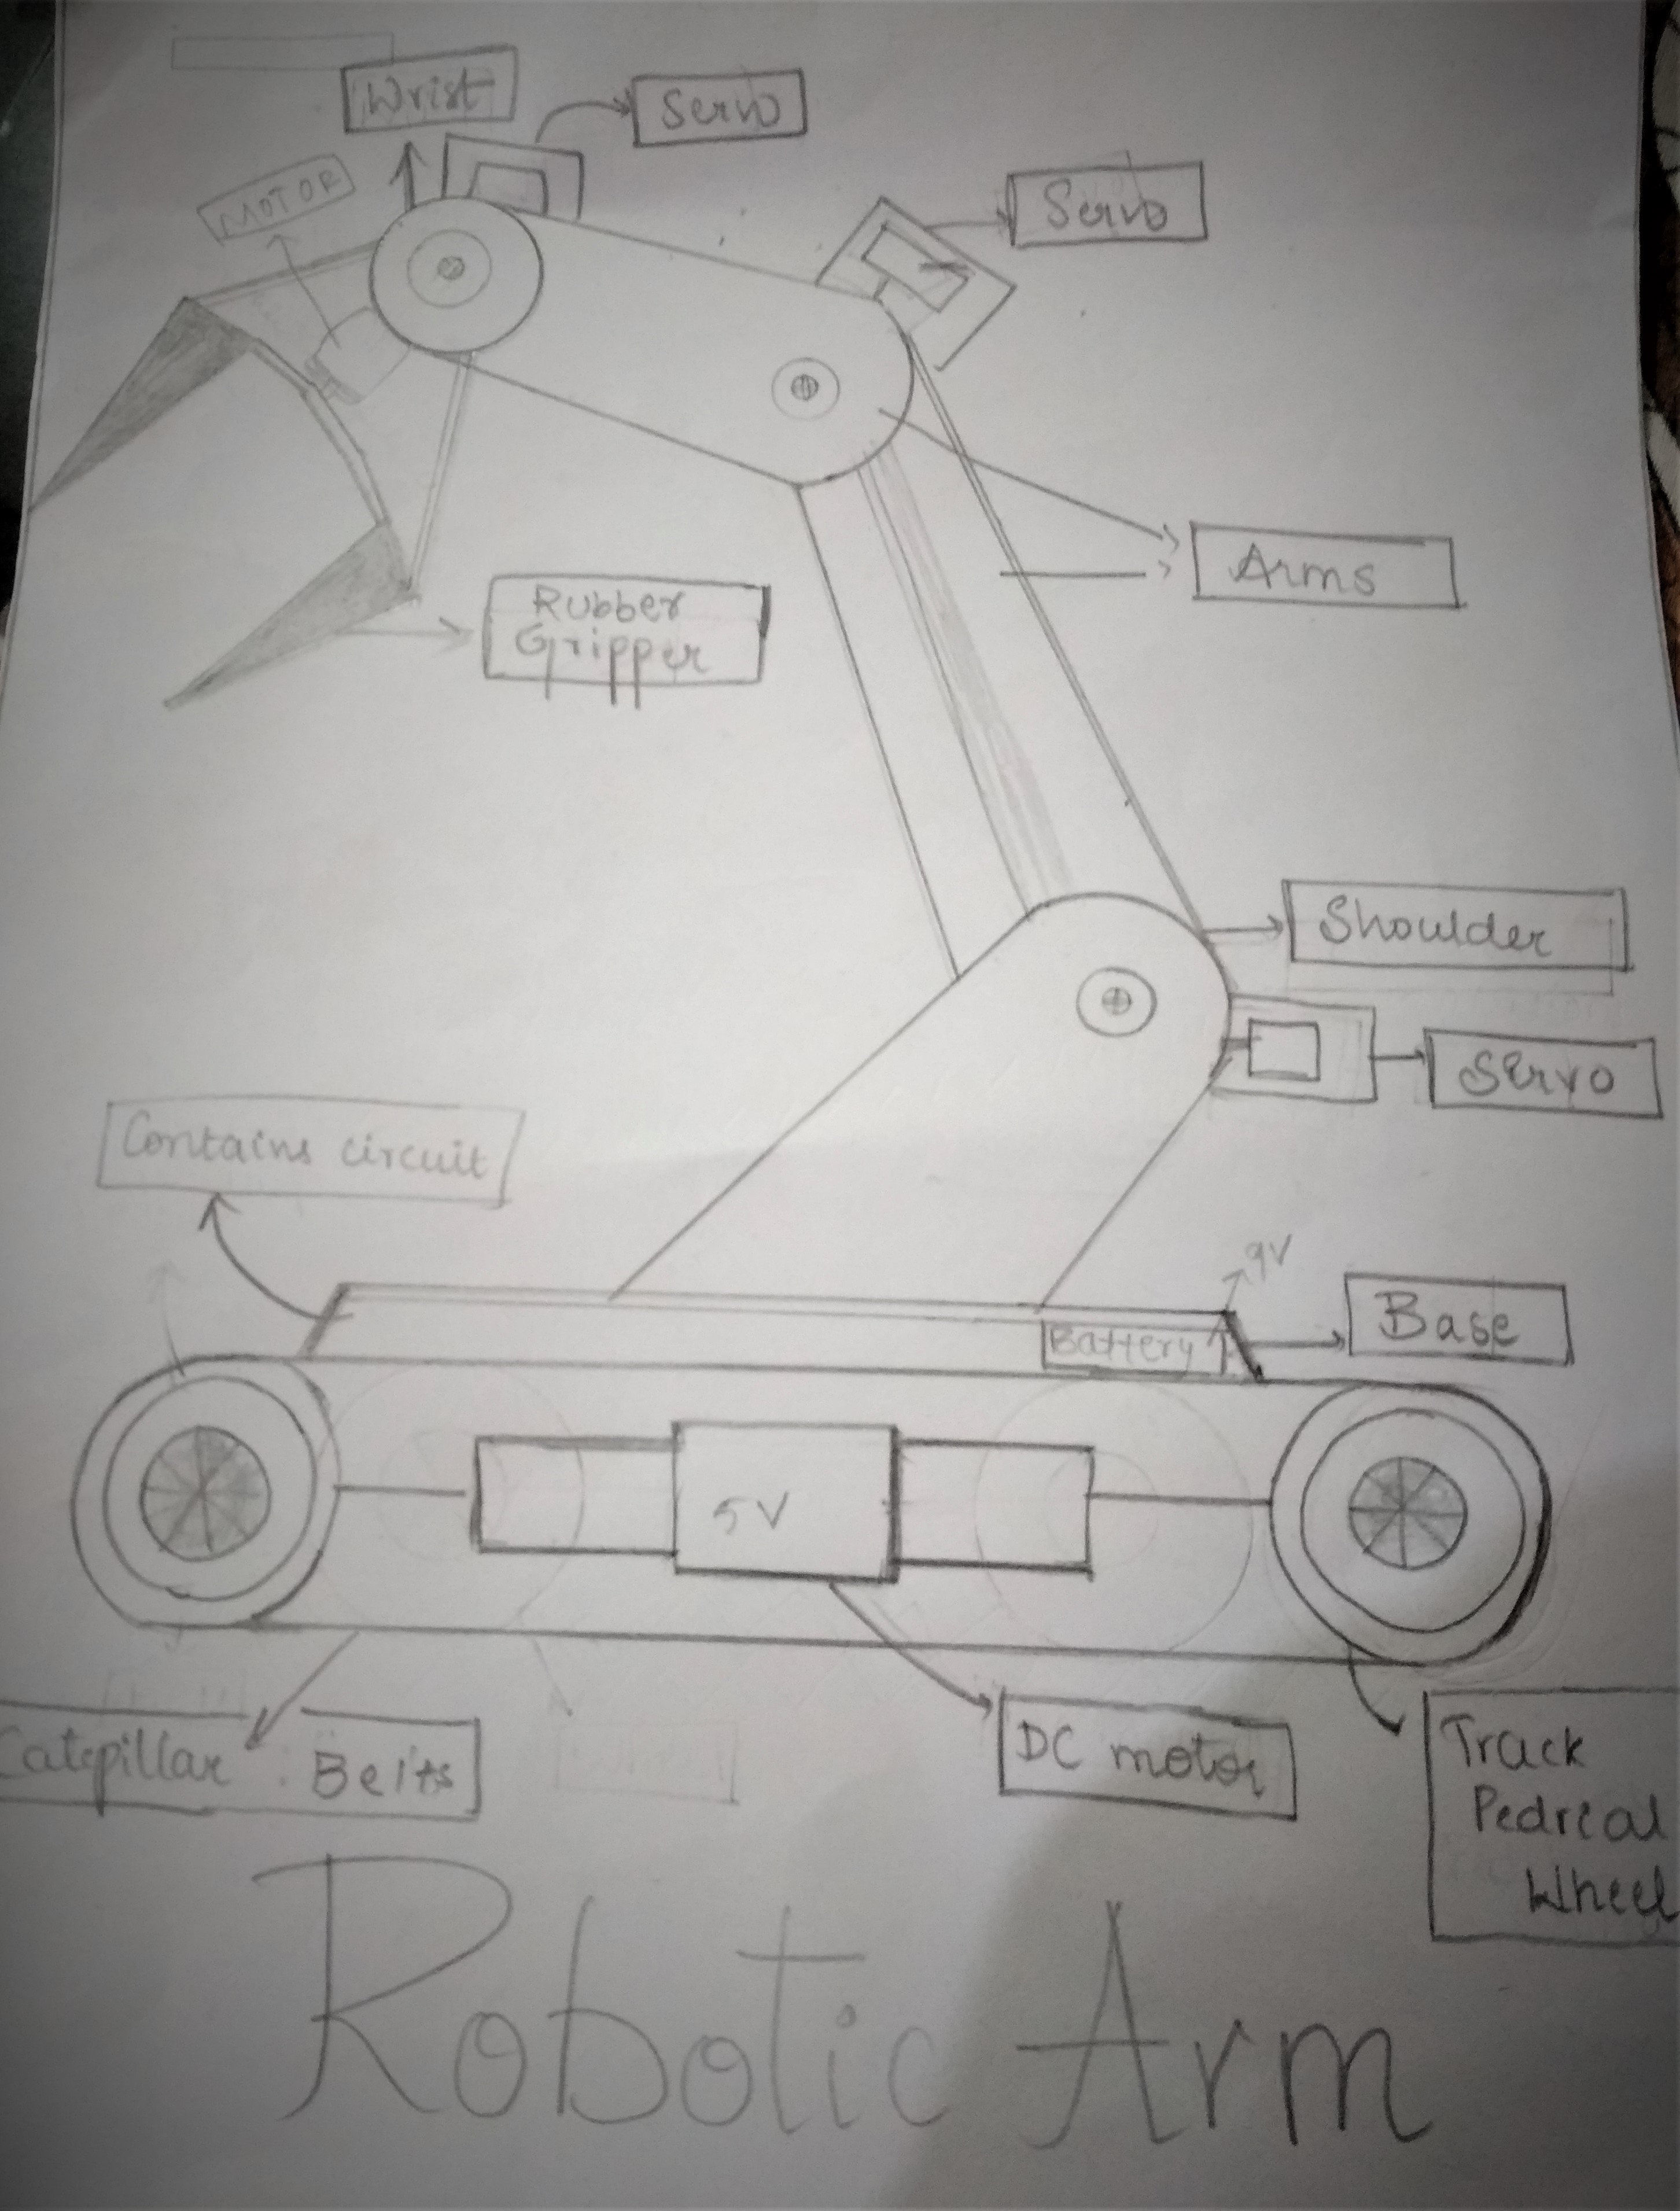 Wrist
Servo
MOTOR
Servo
Arms
Rubber
Gripper
Shoulder
Servo
Contains circuit
9V
Base
Battery
5V
Catepillar Belts
DC motor
Track
Pedreal
Wheel
Robotic Arm